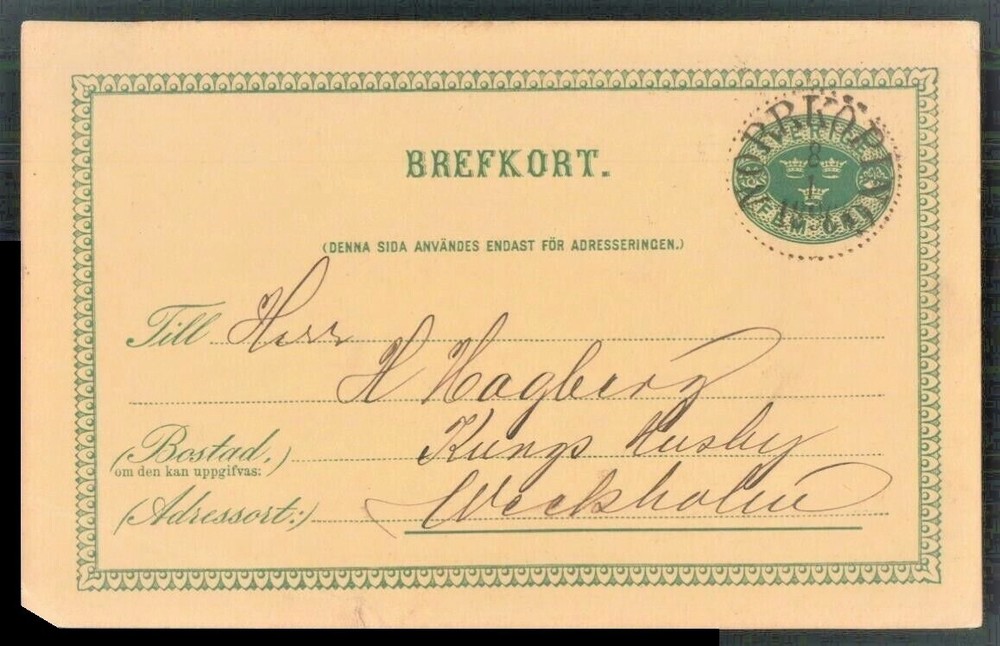 BREFKORT.
NORRKÖPING
8
1
SVERIGE
FEM
(DENNA SIDA ANVÄNDES ENDAST FÖR ADRESSERINGEN.)
Till Herr
H Hagberg
(Bostad,) Kungs Husby
om den kan uppgifvas:
(Adressort:) Weckholm